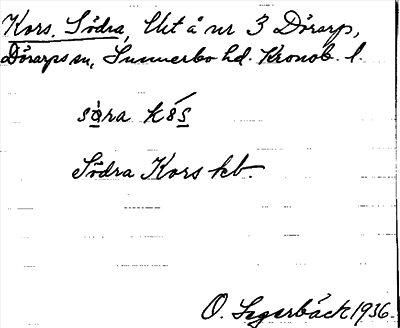 Kors, Södra, lht å nr 3 Dörarp,
Dörarps sn, Sunnerbo hd. Kronob. l.
söra kós
Södra Kors kb.
O. Lagerbäck 1936.